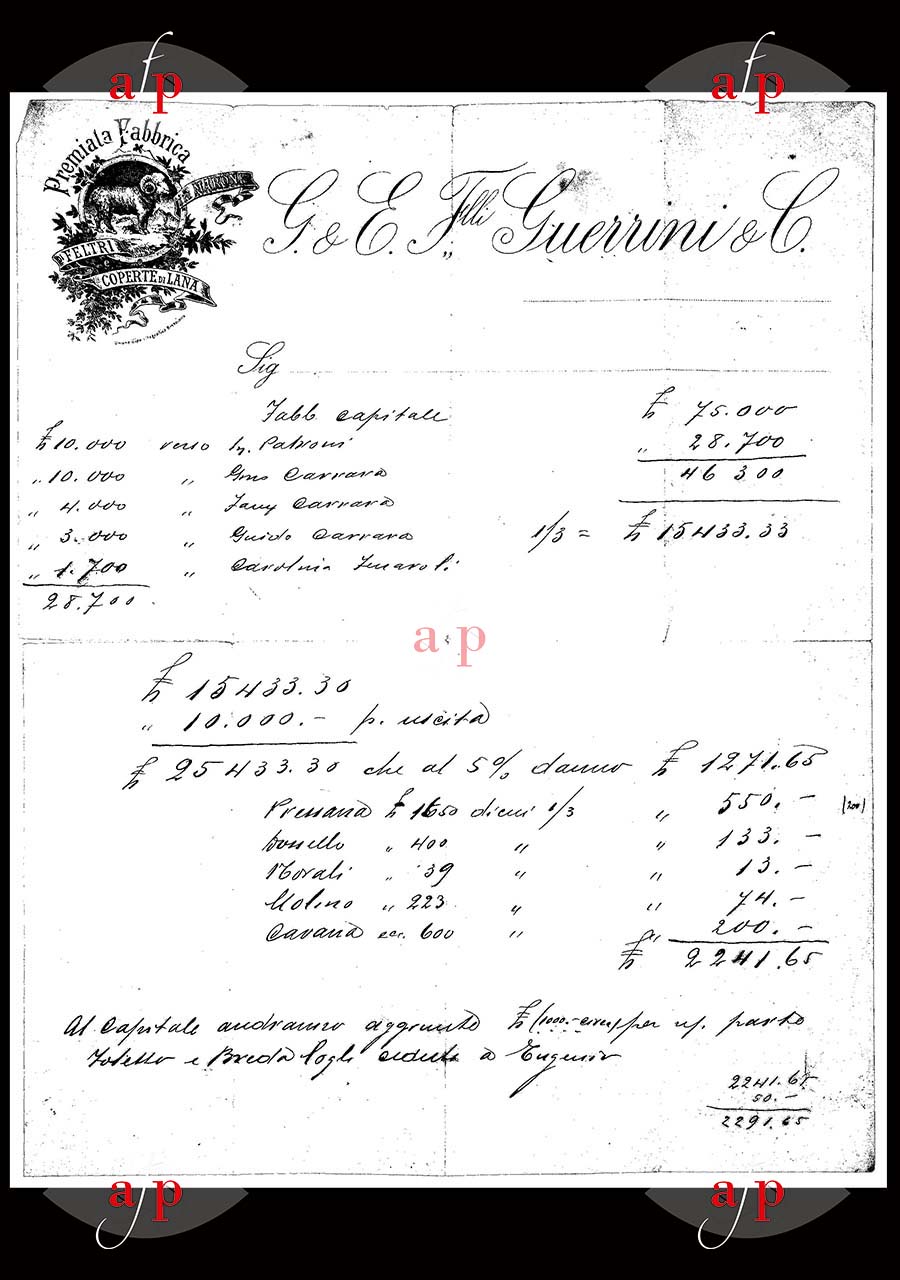 afp
afp
Premiata Fabbrica
FELTRI
COPERTE DI LANA
G. & E. F.lli Guerrini & C.
Sig
Fabb. capitale £ 75.000
£ 10.000 verso Ig. Patroni „ 28.700
„ 10.000 „ Gino Carrara 46 300
„ 4.000 „ Fany Carrara
„ 3.000 „ Guido Carrara 1/3 = £ 15433.33
„ 1.700 „ Carolina Fenaroli
28.700
ap
£ 15433.30
„ 10.000.- p. uscita
£ 25433.30 che al 5% danno £ 1271.65
£ 1650 dicui 1/3 „ 550.- (200)
„ 400 „ „ 133.-
Morali „ 39 „ „ 13.-
Molino „ 223 „ „ 74.-
Cavana ecc. 600 „ „ 200.-
£ 2241.65
Al Capitale andranno aggiunte £ (1000.- circa) per up. parto
e Breda Eugenio
2241.65
50.-
2291.65
afp
afp